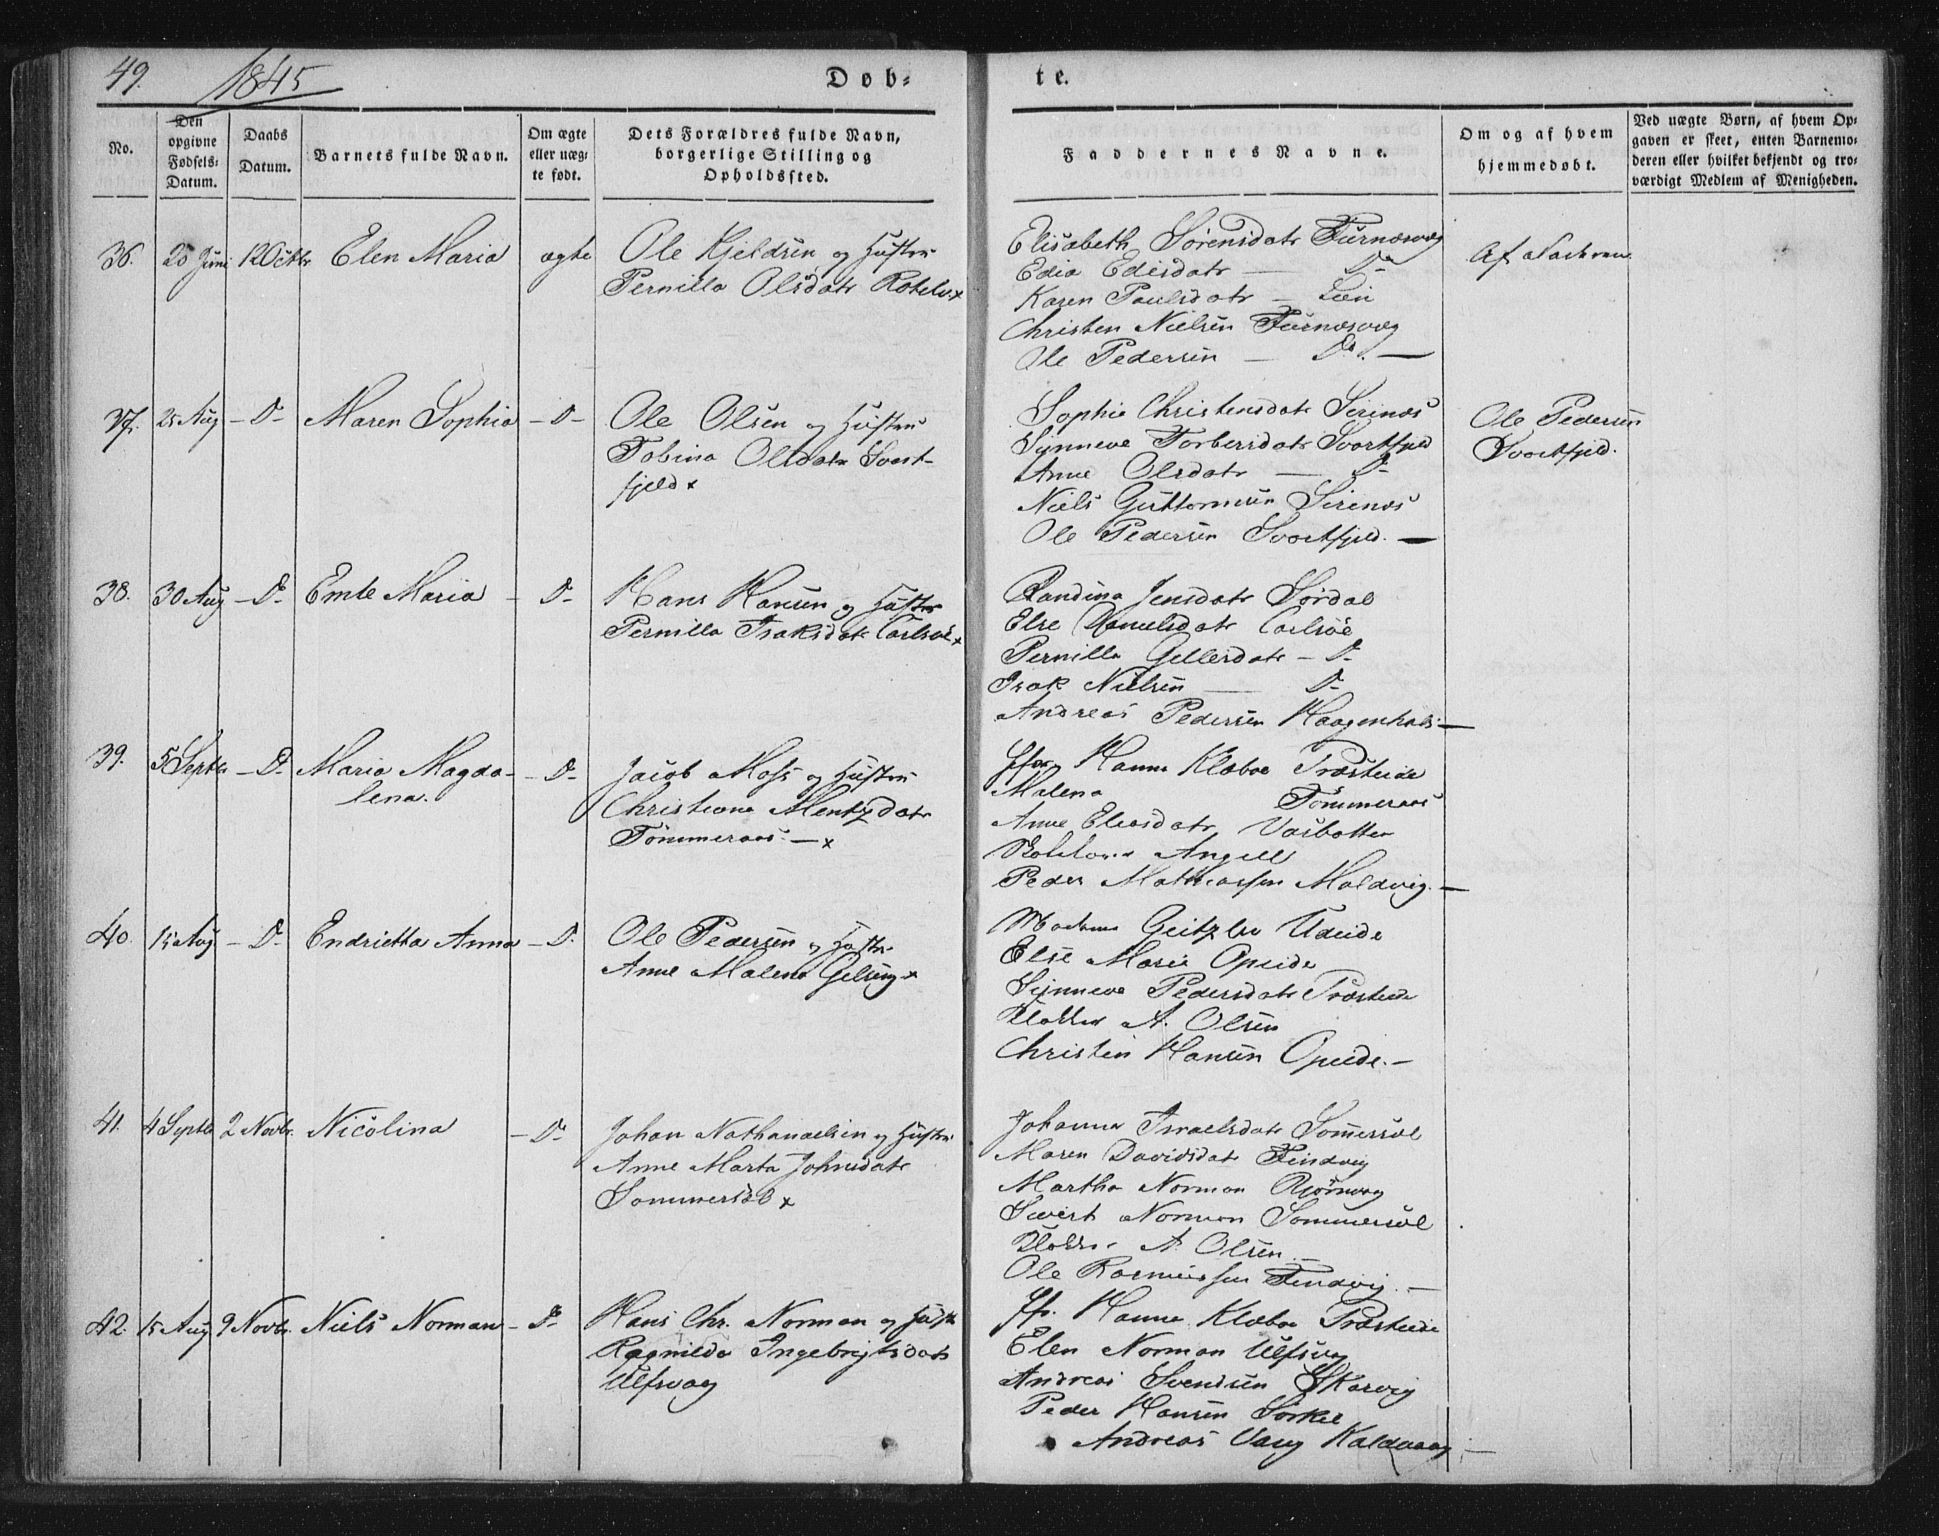 49. 1845
Døb-
te.
No.
Den opgivne Fødsels-Datum.
Daabs Datum.
Barnets fulde Navn.
Om ægte eller uæg-te født.
Dets Forældres fulde Navn, borgerlige Stilling og Opholdssted.
Faddernes Navne.
Om og af hvem hjemmedøbt.
Ved uægte Børn, af hvem Op-gaven er skeet, enten Barnemo-deren eller hvilket bekjendt og tro-værdigt Medlem af Menigheden.
36. 20 Juni 12 Octbr Elen Maria ægte
Ole Kjeldsen og Hustru
Pernilla Olsdatr
Elisabeth Sørensdatr Furnæsvæg
Edia Edisdatr — Do
Karen Paulsdatr — Lien
Christen Nielsen Furnæsvæg
Ole Pedersen — Do. —
Af
37. 25 Aug — Do — Maren Sophia — Do —
Ole Olsen og Hustru
Tobina Olsdatr Svart-
fjeld x
Sophie Christensdatr Serinæs
Synneve Torbersdatr Svartfjeld
Anne Olsdatr — Do
Niels Guttormsen Serinæs
Ole Pedersen Svartfjeld. —
Ole Pedersen
Svartfjeld.
38. 30 Aug — Do — Emle Maria — Do —
Hans Hansen og Hustru
Pernilla Isaksdatr Carlsøe x
Randina Jensdatr Sørdal
Else Danielsdatr Carlsøe
Pernilla Gellersdatr — Do
Isak Nielsen — Do
Andreas Pedersen Haagenhals —
39. 5 Septbr — Do — Maria Magda-
lena. — Do —
Jacob Moss og Hustru
Christiane Mentzdatr
Tømmeraas — x
Hanna Klæboe Præsteide
Malena Tømmeraas
Anne Eliasdatr Vasbotten
Angell
Peder Mathiassen Maldvig. —
40. 15 Aug — Do — Endrietta Anna — Do.
Ole Pedersen og Hustru
Anne Malena x
Madam Geitzler Udeide
Else Marie Opeide
Synneve Pedersdatr Præsteide
Klokker A. Olsen
Christen Hansen Opeide. —
41. 4 Septbr 2 Novbr. Nicolina — Do —
Johan Nathanaelsen og Hustru
Anne Marta Johnsdatr
Sommersæl x
Johanna Israelsdatr Sommersæl
Maren Davidsdatr Findvig
Martha Norman Bjørnvag
Sivert Norman Sommersæl
Klokker A. Olsen —
Ole Rasmussen Findvig. —
42. 15 Aug 9 Novbr. Niels Norman — Do —
Hans Chr. Norman og Hustr
Ragnilda Ingebrigtsdatr
Ulfsvaag
Hanna Klæboe Præsteide
Elen Norman Ulfsvag
Andreas Svendsen Skarvig
Peder Hansen
Andreas Vaag Kaldvaag —